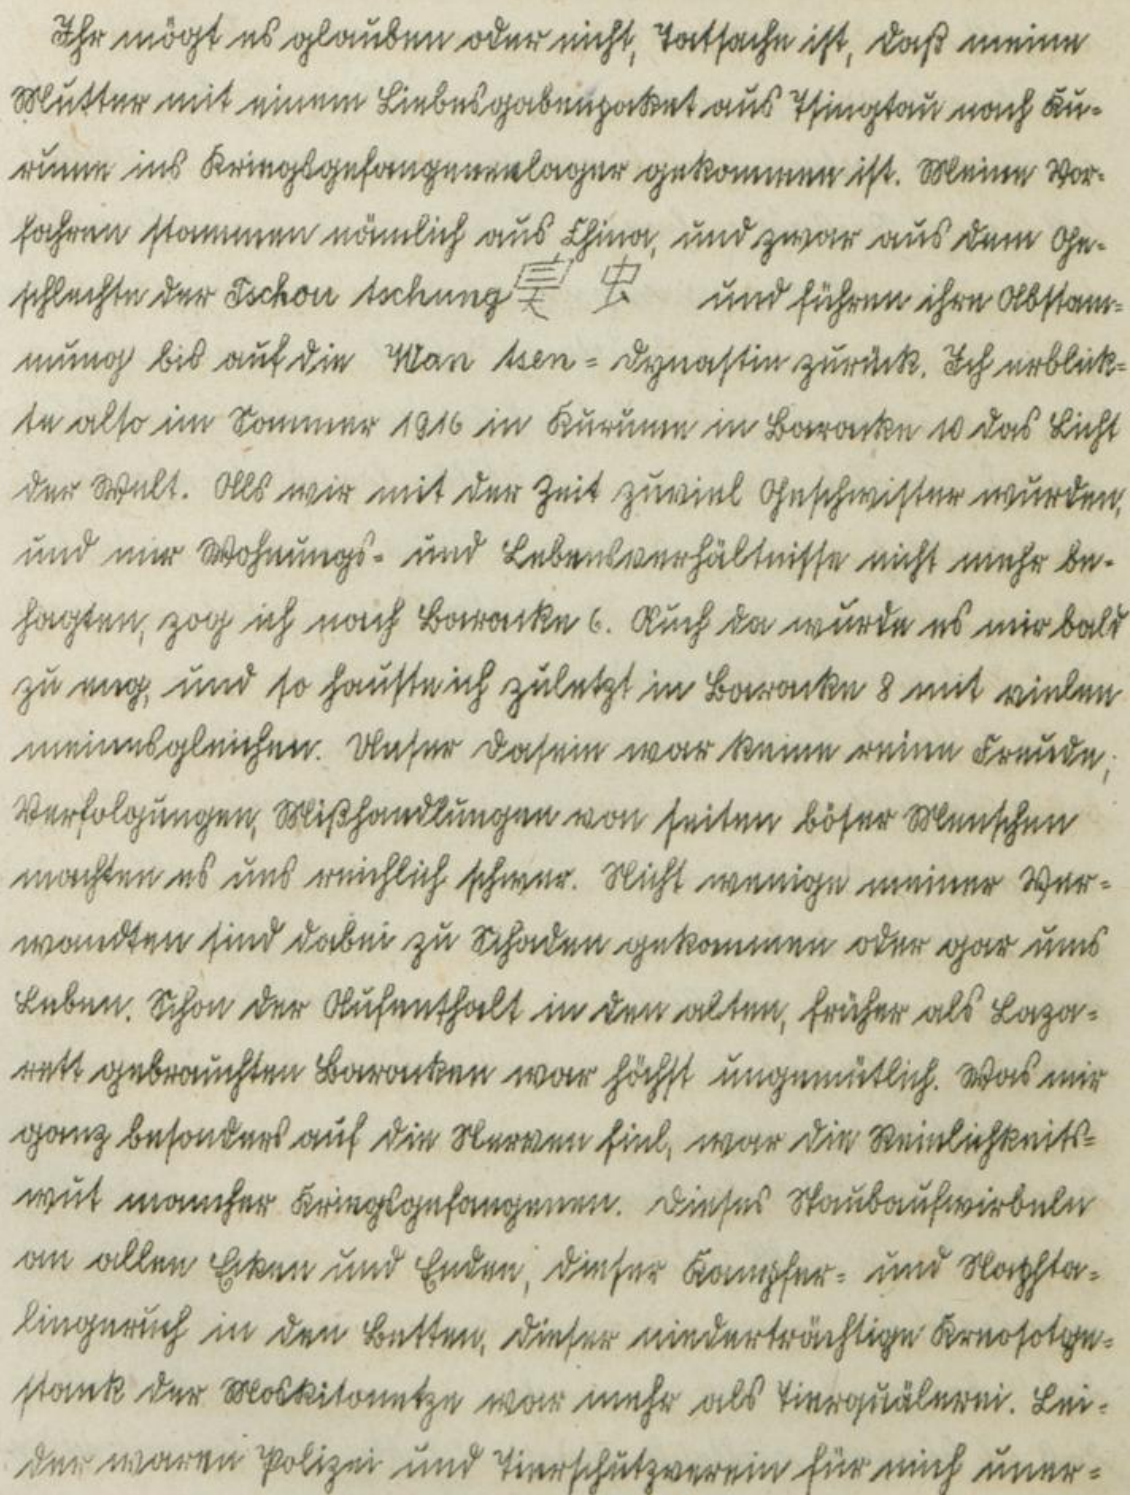 Ihr mögt es glauben oder nicht, Tatsache ist, daß meine
Mutter mit einem Liebesgabenpaket aus Tsingtau nach Ku-
rume ins Kriegsgefangenenlager gekommen ist. Meine Vor-
fahren stammen nämlich aus China, und zwar aus dem Ge-
schlechte der Tschou tschung 臭 虫 und führen ihre Abstam-
mung bis auf die Wan tsen = Dynastie zurück. Ich erblick-
te also im Sommer 1916 in Kurume in Baracke 10 das Licht
der Welt. Als wir mit der Zeit zuviel Geschwister wurden,
und mir Wohnungs- und Lebensverhältnisse nicht mehr be-
hagten, zog ich nach Baracke 6. Auch da wurde es mir bald
zu eng, und so hauste ich zuletzt in Baracke 8 mit vielen
meinesgleichen. Unser Dasein war keine reine Freude;
Verfolgungen, Mißhandlungen von seiten böser Menschen
machten es uns reichlich schwer. Nicht wenige meiner Ver-
wandten sind dabei zu Schaden gekommen oder gar ums
Leben. Schon der Aufenthalt in den alten, früher als Laza-
rett gebrauchten Baracken war höchst ungemütlich. Was mir
ganz besonders auf die Nerven fiel, war die Reinlichkeits-
wut mancher Kriegsgefangenen. Dieses Staubaufwirbeln
an allen Ecken und Enden, dieser Kampfer- und Naphta-
lingeruch in den Betten, dieser niederträchtige Kreosotge-
stank der Moskitonetze war mehr als Tierquälerei. Lei-
der waren Polizei und Tierschutzverein für mich uner-